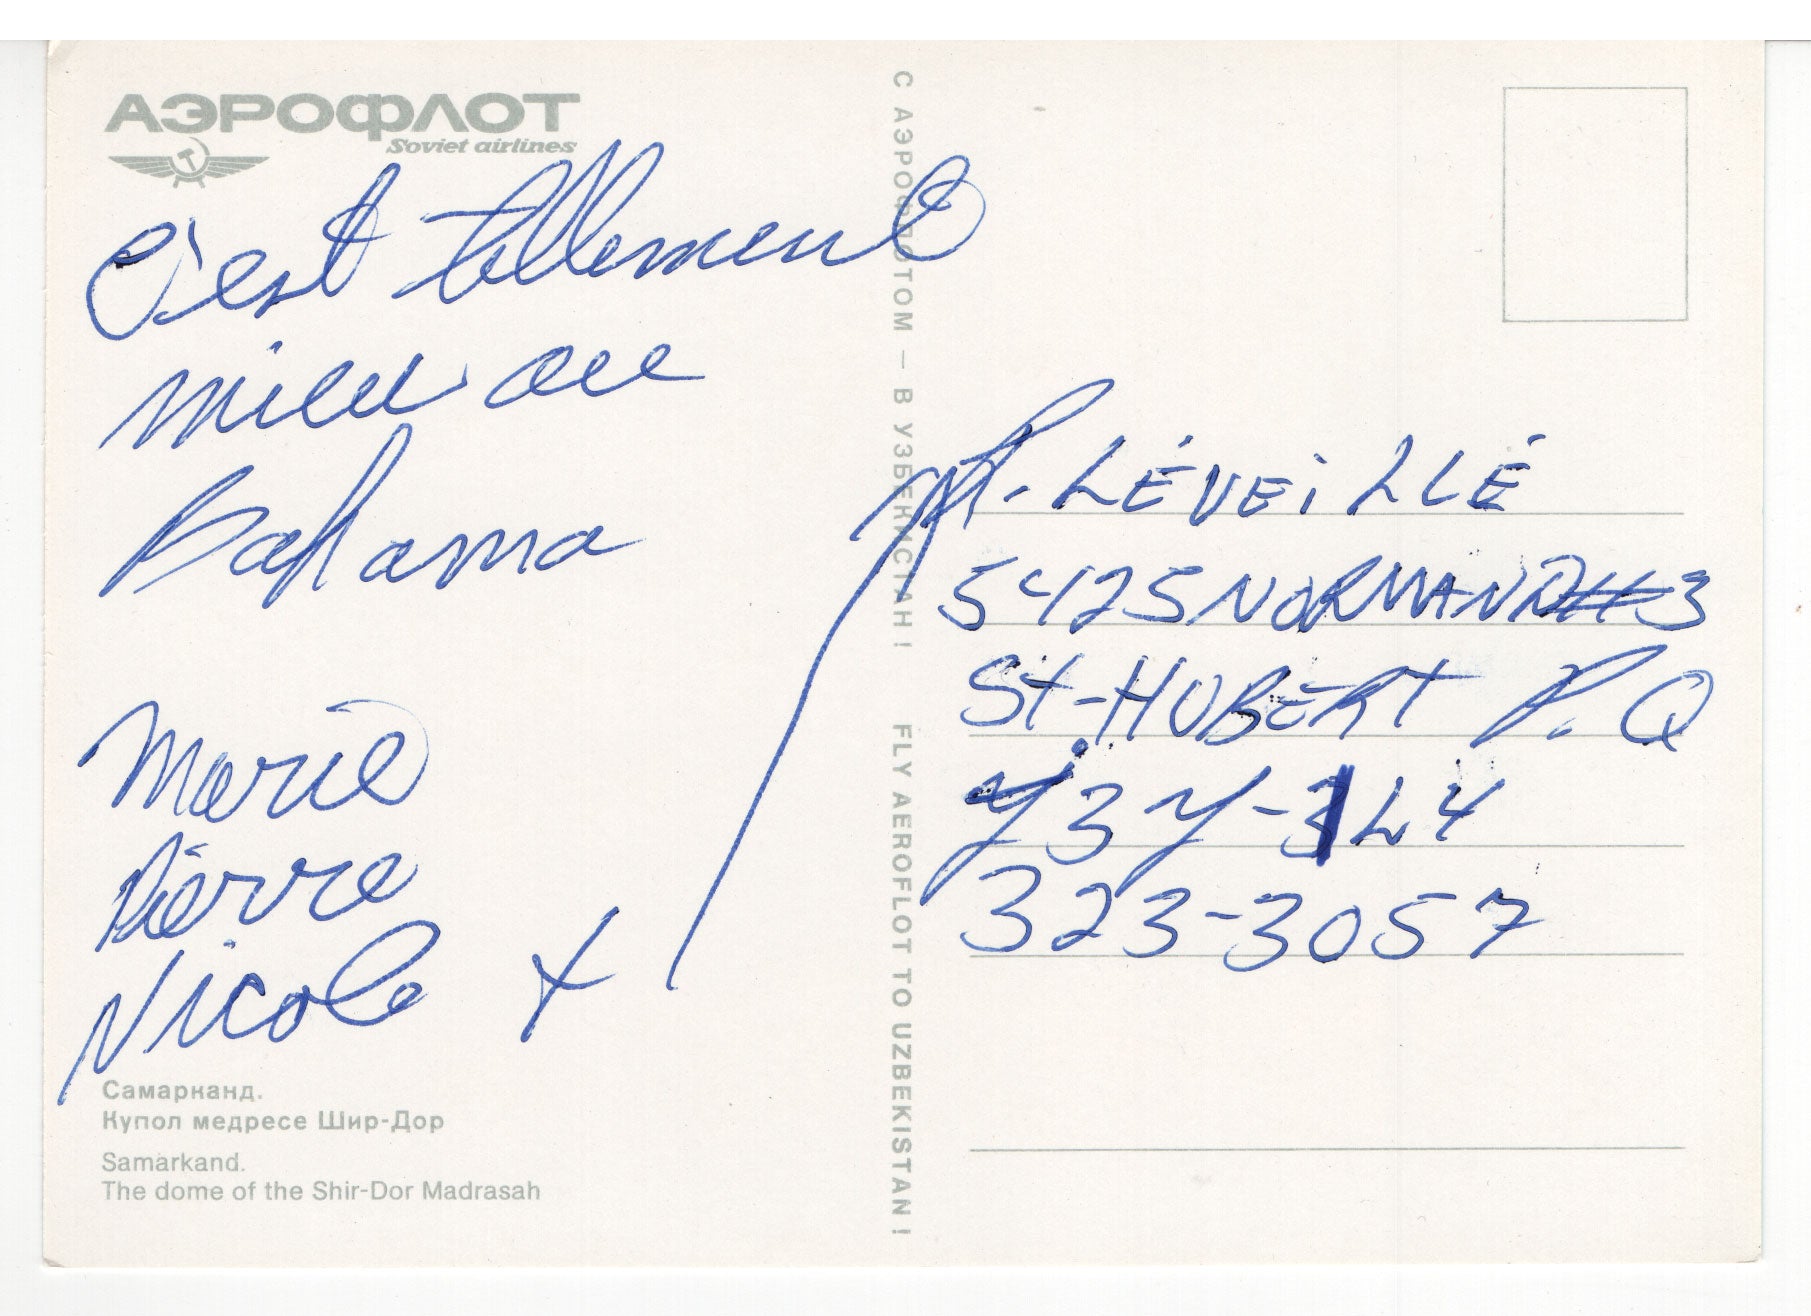 АЭРОФЛОТ
Soviet airlines
C'est tellement
mieu au
Bahama
Marie
Pierre
Nicole +
Самарканд.
Купол медресе Шир-Дор
Samarkand.
The dome of the Shir-Dor Madrasah
С АЭРОФЛОТОМ – В УЗБЕКИСТАН! FLY AEROFLOT TO UZBEKISTAN!
LÉVEiLLÉ
5425 NORMAND #3
St-HUBERT P.Q
J3Y-1L4
323-3057